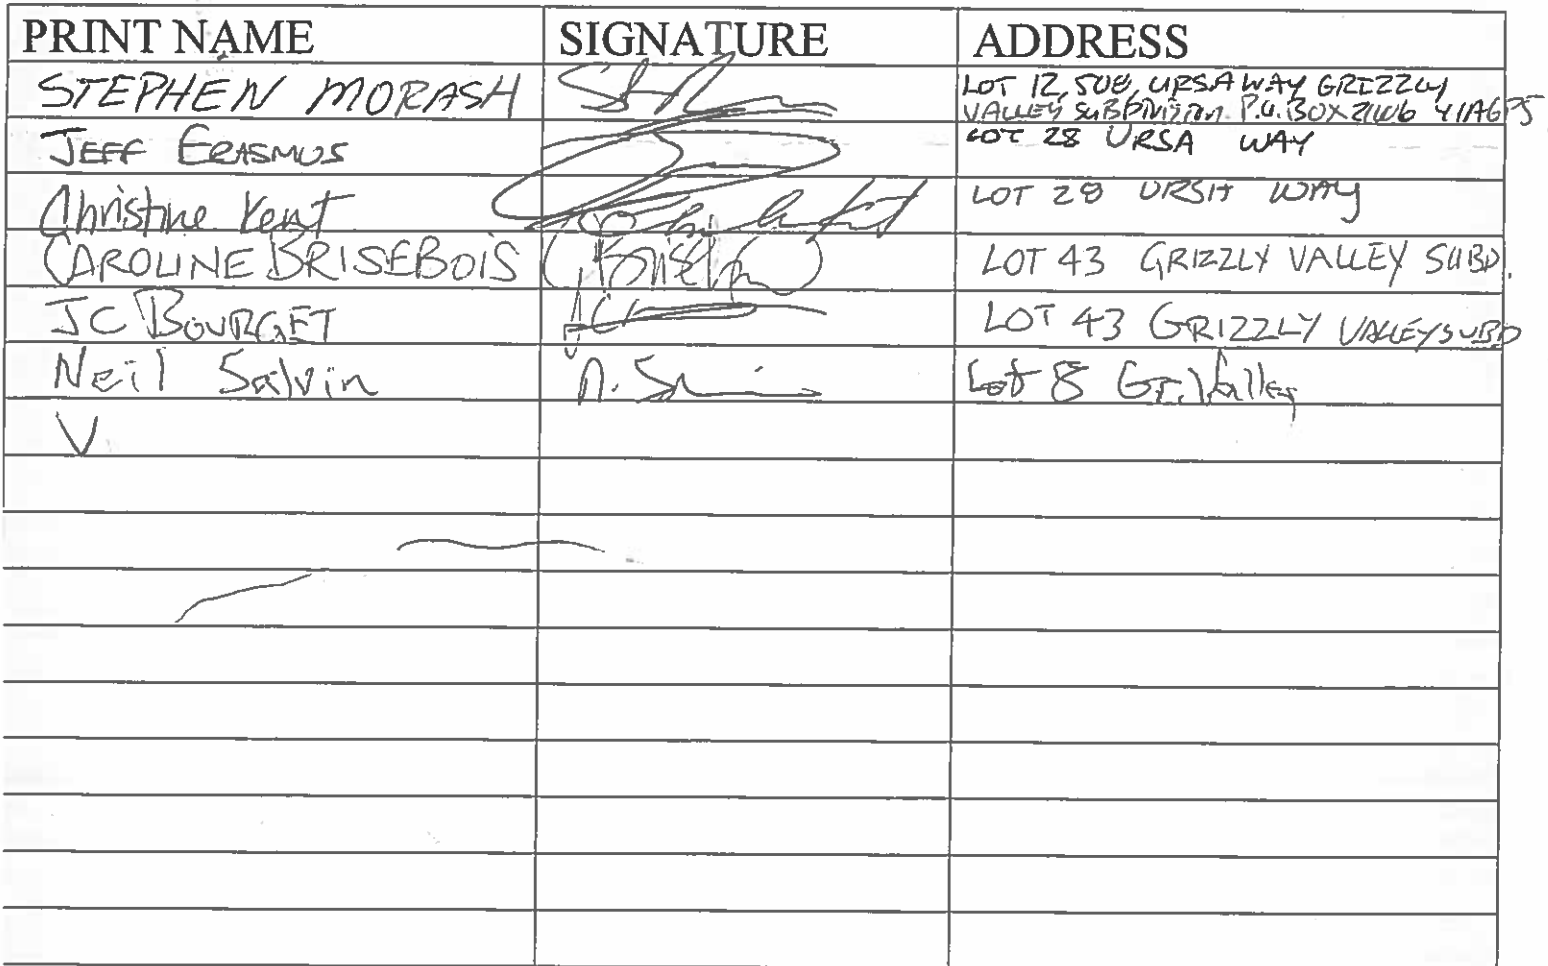 PRINT NAME SIGNATURE ADDRESS
STEPHEN MORASH LOT 12, 508, URSA WAY GRIZZLY
VALLEY SUBDIVISION. P.O. BOX Y1A6P5
JEFF ERASMUS LOT 28 URSA WAY
Christine Kent LOT 28 URSA WAY
CAROLINE BRISEBOIS LOT 43 GRIZZLY VALLEY SUBD.
JC BOURGET LOT 43 GRIZZLY VALLEY SUBD
Neil Salvin N. S Lot 8 Gr. Valley
V